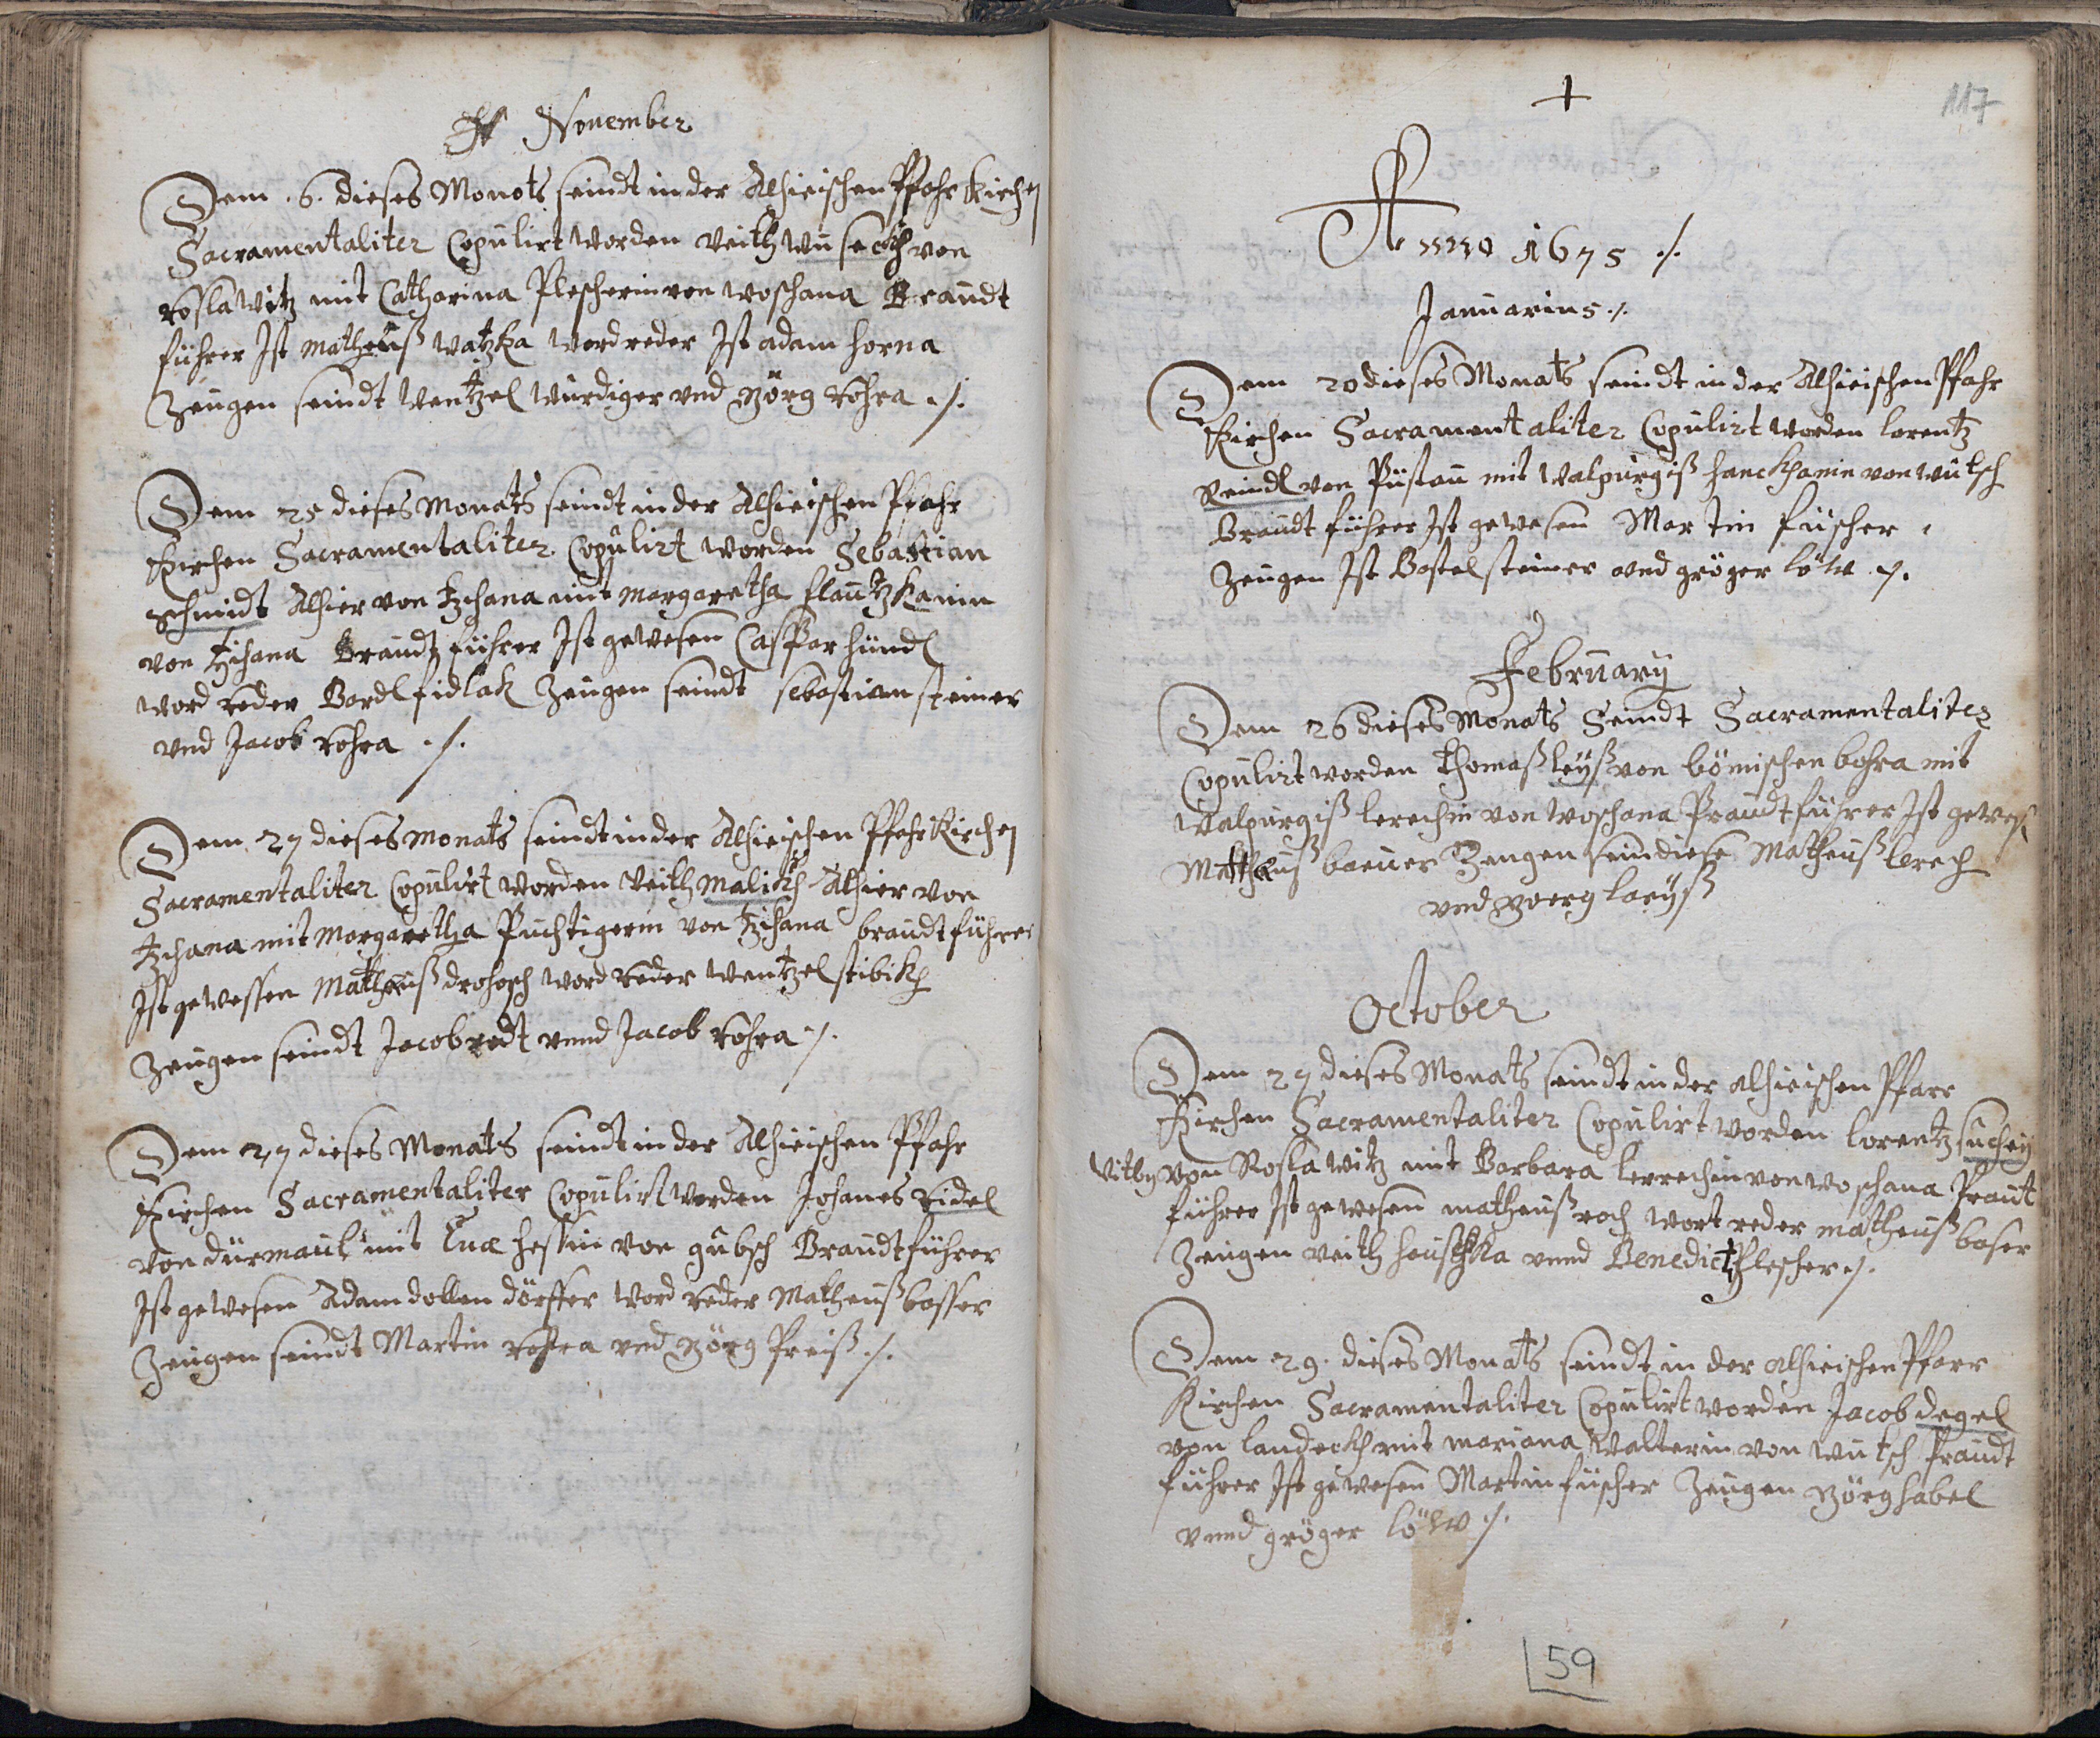 November
Dem .6. dieses Monots seindt in der Alhieischen Pfahr Kirchen
Sacramentaliter Copulirt worden Veith wuseckh von
roslawitz mit Catharina Plescherin von woschana Braudt
führer Ist Matheuß watzka wordreder Ist adam horna
Zeugen seindt Wentzel würdiger vnd Görg Kohra ./.
Dem 25 dieses Monats seindt in der Alhieischen Pfahr
Kirchen Sacramentaliter Copulirt worden Sebastian
schmidt Alhier von tzchana mit Margaretha flautzkanin
von tzchana Braudt führer Ist gewesen Caspar hündl
word reder Bardl fidlak Zeugen seindt sebastian steiner
vnd Jacob Kohra ./.
Dem 27 dieses Monats seindt in der Alhieischen Pfahr Kirchen
Sacramentaliter Copulirt worden Veith Malikh Alhier von
tzchana mit Margaretha Puchtigerin von tzchana braudtführer
Ist gewessen Matheuß drohosch word reder Wentzel stibikh
Zeugen seindt Jacob redt vnnd Jacob Kohra ./.
Dem 27 dieses Monats seindt in der Alhieischen Pfahr
Kirchen Sacramentaliter Copulirt worden Johanes ridel
von dürmaul mit Eua hessin von gübsch Braudtführer
Ist gewesen Adam dollendörffer word reder Matheuß bosser
Zeugen seindt Martin Kohra vnd Görg Preiß ./.
117
Anno 1675 ./.
Januarius ./.
Dem 20 dieses Monats seindt in der Alhieischen Pfahr
Kirchen Sacramentaliter Copulirt worden lorentz
Reindl von Püstau mit Walpurgiß hanckhanin von wutsch
Braudt führer Ist gewesen Martin füscher
Zeugen Ist Bastel steiner vnd gröger löw ./.
February
Dem 26 dieses Monats Seindt Sacramentaliter
Copulirt worden Thomaß leyß von bömischen bohra mit
Walpurgiß lerechin von woschana Praudtführer Ist gewest
Matheuß baeuer Zeugen sein diese Matheuß lerech
vnd Goerg laeyß
October
Dem 27 dieses Monats seindt in der alhieischen Pfarr
Kirchen Sacramentaliter Copulirt worden lorentz suchey
von Roslawitz mit Barbara lerrechin von woschana Praut
führer Ist gewesen matheuß roch wort reder matheuß boser
Zeugen veith hauschka vnnd Benedict Plescher ./.
Dem 29. dieses Monats seindt in der alhieischen Pfarr
Kirchen Sacramentaliter Copulirt worden Jacob degel
von landeckh mit mariana Walterin von wutsch Praudt
führer Ist gewesen Martin füscher Zeugen Görg habel
vnnd gröger löw ./.
59